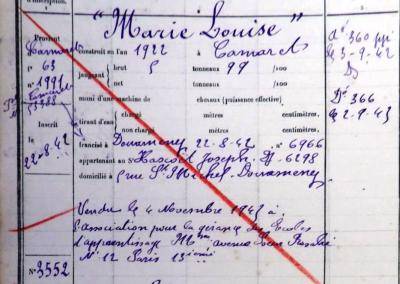 d'inscription.
"Marie Louise"
Provient
Camaret
f° 63
n° 1991
construit en l'an 1922 à Camaret
jaugeant { brut 5 tonneaux 99 /100
net tonneaux /100
muni d'une machine de chevaux (puissance effective)
tirant d'eau { chargé mètres centimètres,
non chargé mètres centimètres,
francisé à Douarnenez 22-8-42 n° 6966
appartenant au Joseph, 6298
domicilié à 5 rue St Michel. Douarnenez
Inscrit
le
22-8-42
Vendu le 4 Novembre 1943 à
l'association pour la gérance des Ecoles
d'apprentissage avenue Sœur Rosalie
N° 12 Paris 13ième
N° 3552
D° 360
le 3-9-42
D° 366
le 2-9-43